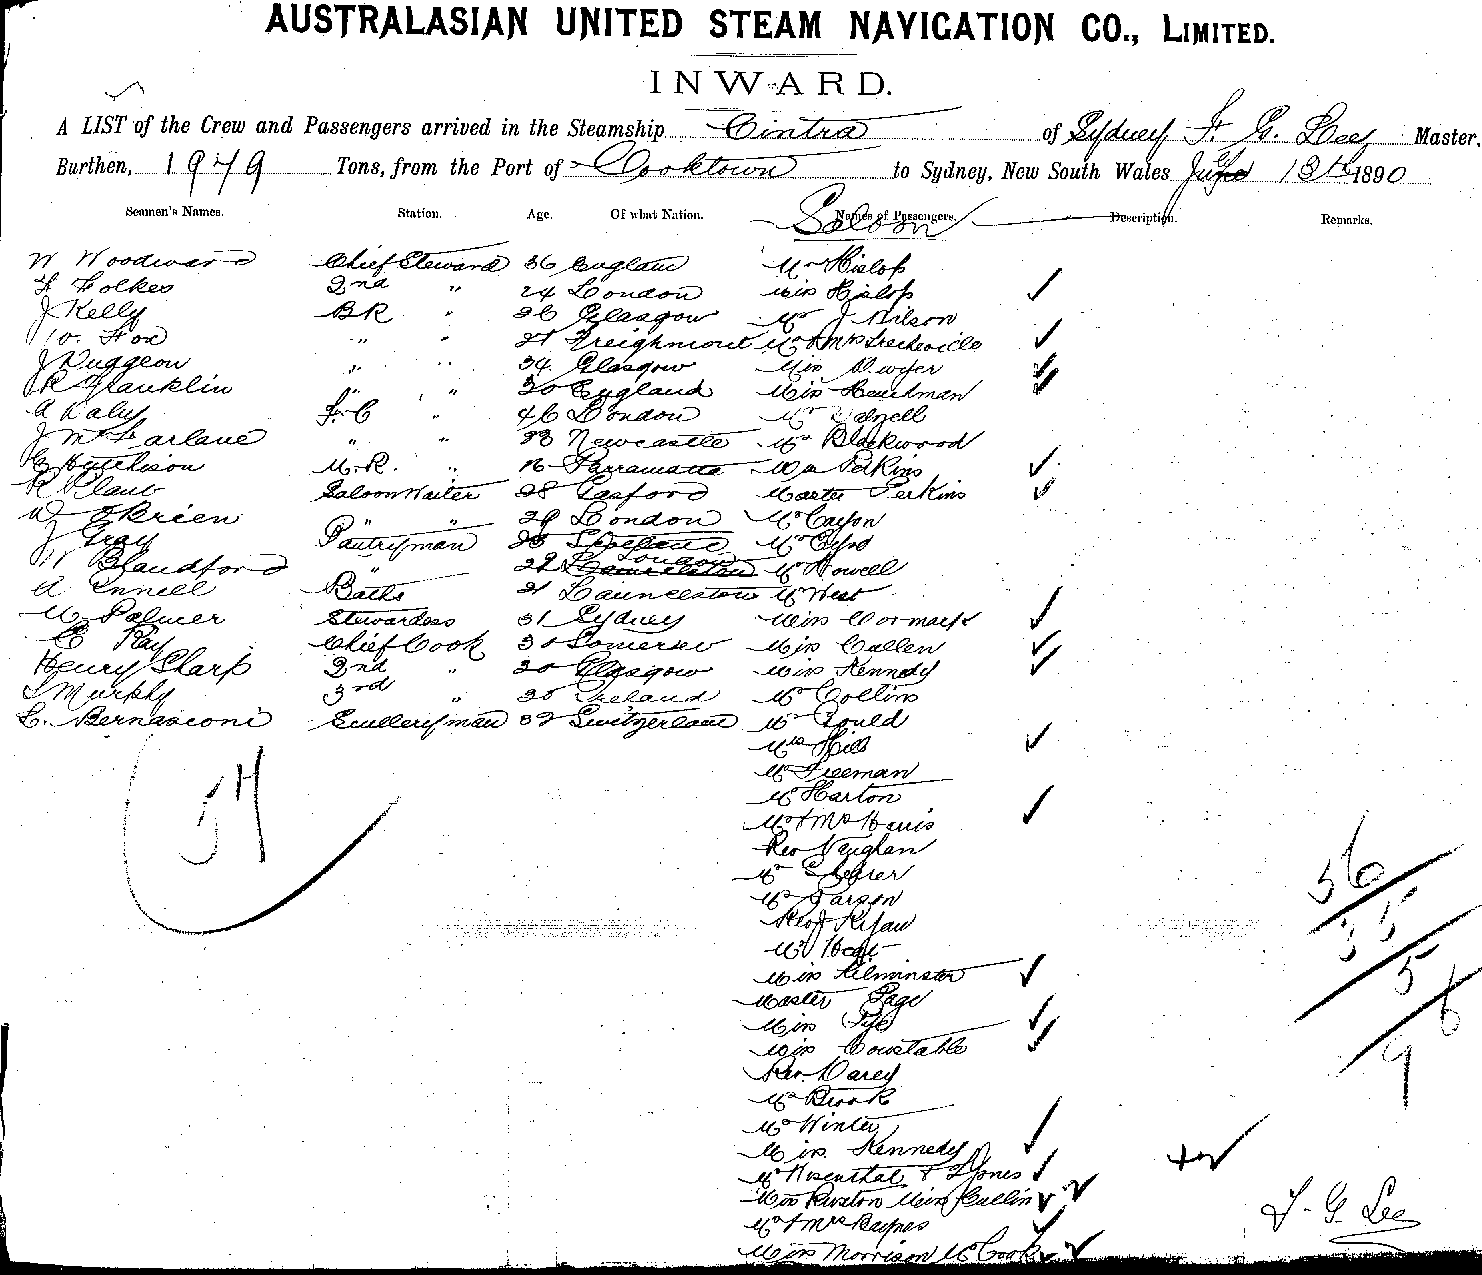 AUSTRALASIAN UNITED STEAM NAVIGATION CO., LIMITED.
INWARD.
A LIST of the Crew and Passengers arrived in the Steamship Cintra of Sydney F. G. Lee Master,
Burthen, 1979 Tons, from the Port of Cooktown to Sydney, New South Wales 13th 1890
Seamen's Names. Station. Age. Of what Nation. Names of Passengers. Description. Remarks.
Saloon
W Woodward Chief Steward 36 England Mr Hislop
F Folkes 2nd " 24 London Miss Hislop
J Kelly BR " 26 Glasgow Mr J Wilson
W. Fox " " 21 Mr & Mrs
J Dudgeon " " 34 Glasgow Miss Dwyer
R Franklin " " 30 England Miss Henchman
A Daly F.C " 46 London Mr Dalzell
J McFarlane " " 33 Newcastle Mr Blackwood
G Hutchison M.R. " 16 Parramatta Mrs Perkins
R Plant Saloon Waiter 28 Gosford Master Perkins
W O'Brien " " 29 London Mr Carson
J Gray Pantryman Mr
W Blandford " 22 London Mr Howell
A Ennell Baths 21 Launceston Mr West
M Palmer Stewardess 31 Sydney Miss
C Ray Chief Cook 30 Somerset Miss Cullen
Henry Sharp 2nd " 30 Glasgow Miss Kennedy
Murphy 3rd " 30 Ireland Mr Collins
L. Bernasconi Sculleryman 32 Switzerland Mr Gould
Mrs Hill
Mr Freeman
Mr Harton
54
Mr & Mrs Harris
Rev Vaughan
Mr Shearer
56
Mr Carson
Rev J
35
Mr
5
Miss Kilminster
Master Page
6
Miss Pye
Miss Constable
9
Rev. Carey
Mr Brook
Mr Winter
Miss Kennedy
Mr Rosenthal & Jones
Miss Ruxton Miss Cullin
F. G. Lee
Mr & Mrs Baynes
Miss Morrison Mr Cook